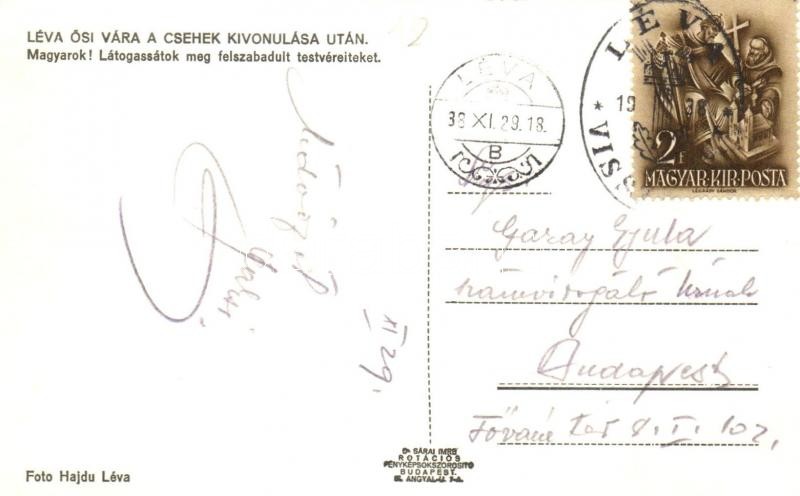 LÉVA ŐSI VÁRA A CSEHEK KIVONULÁSA UTÁN.
Magyarok! Látogassátok meg felszabadult testvéreiteket.
LÉVA
38 XI. 29. 18.
B
LÉVA
19 38
VISS
2 F
MAGYAR·KIR·POSTA
LÉGRÁDY SÁNDOR
XI 29.
Garay Gyula
számvizsgáló úrnak
Budapest
Fővám tér 8. I. 102,
Dr SÁRAI IMRE
ROTÁCIÓS
FÉNYKÉPSOKSZOROSÍTÓ
BUDAPEST.
ANGYAL-U. 7-A.
Foto Hajdu Léva